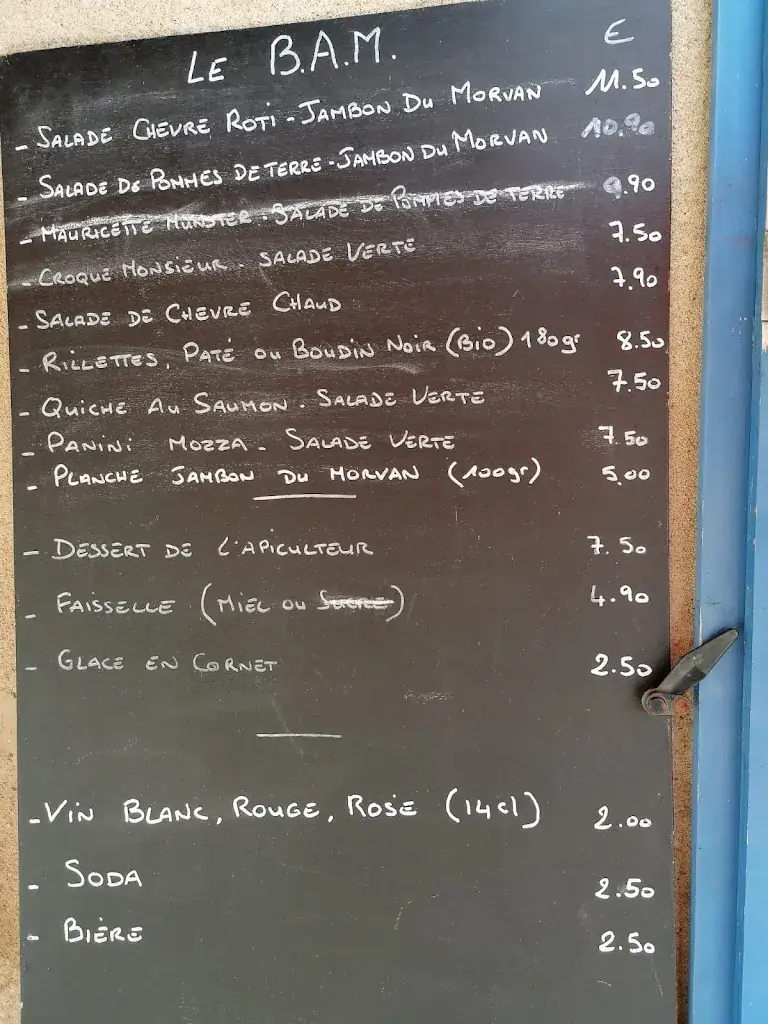 LE B.A.M. €
- SALADE CHEVRE ROTI - JAMBON DU MORVAN 11.50
- SALADE DE POMMES DE TERRE - JAMBON DU MORVAN 10.90
- MAURICETTE MUNSTER - SALADE DE POMMES DE TERRE 9.90
- CROQUE MONSIEUR - SALADE VERTE 7.50
- SALADE DE CHEVRE CHAUD 7.90
- RILLETTES, PATÉ OU BOUDIN NOIR (BIO) 180gr 8.50
- QUICHE AU SAUMON - SALADE VERTE 7.50
- PANINI MOZZA - SALADE VERTE 7.50
- PLANCHE JAMBON DU MORVAN (100gr) 5.00
- DESSERT DE L'APICULTEUR 7.50
- FAISSELLE (MIEL OU SUCRE) 4.90
- GLACE EN CORNET 2.50
- VIN BLANC, ROUGE, ROSÉ (14cl) 2.00
- SODA 2.50
- BIÈRE 2.50